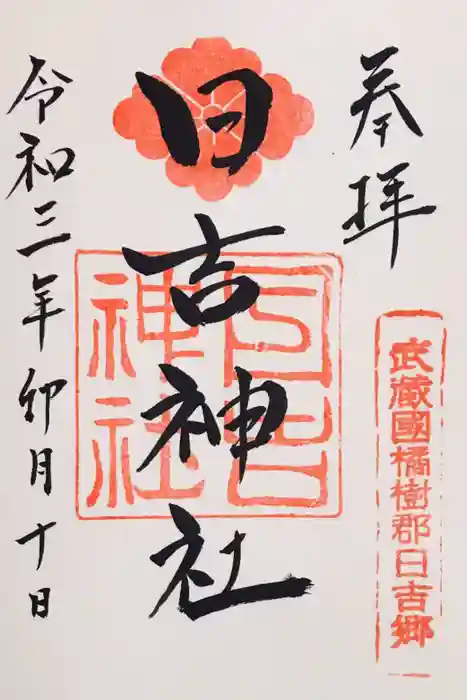 奉拝
武蔵國橘樹郡日吉郷
日吉神社
日吉神社
令和三年卯月十日